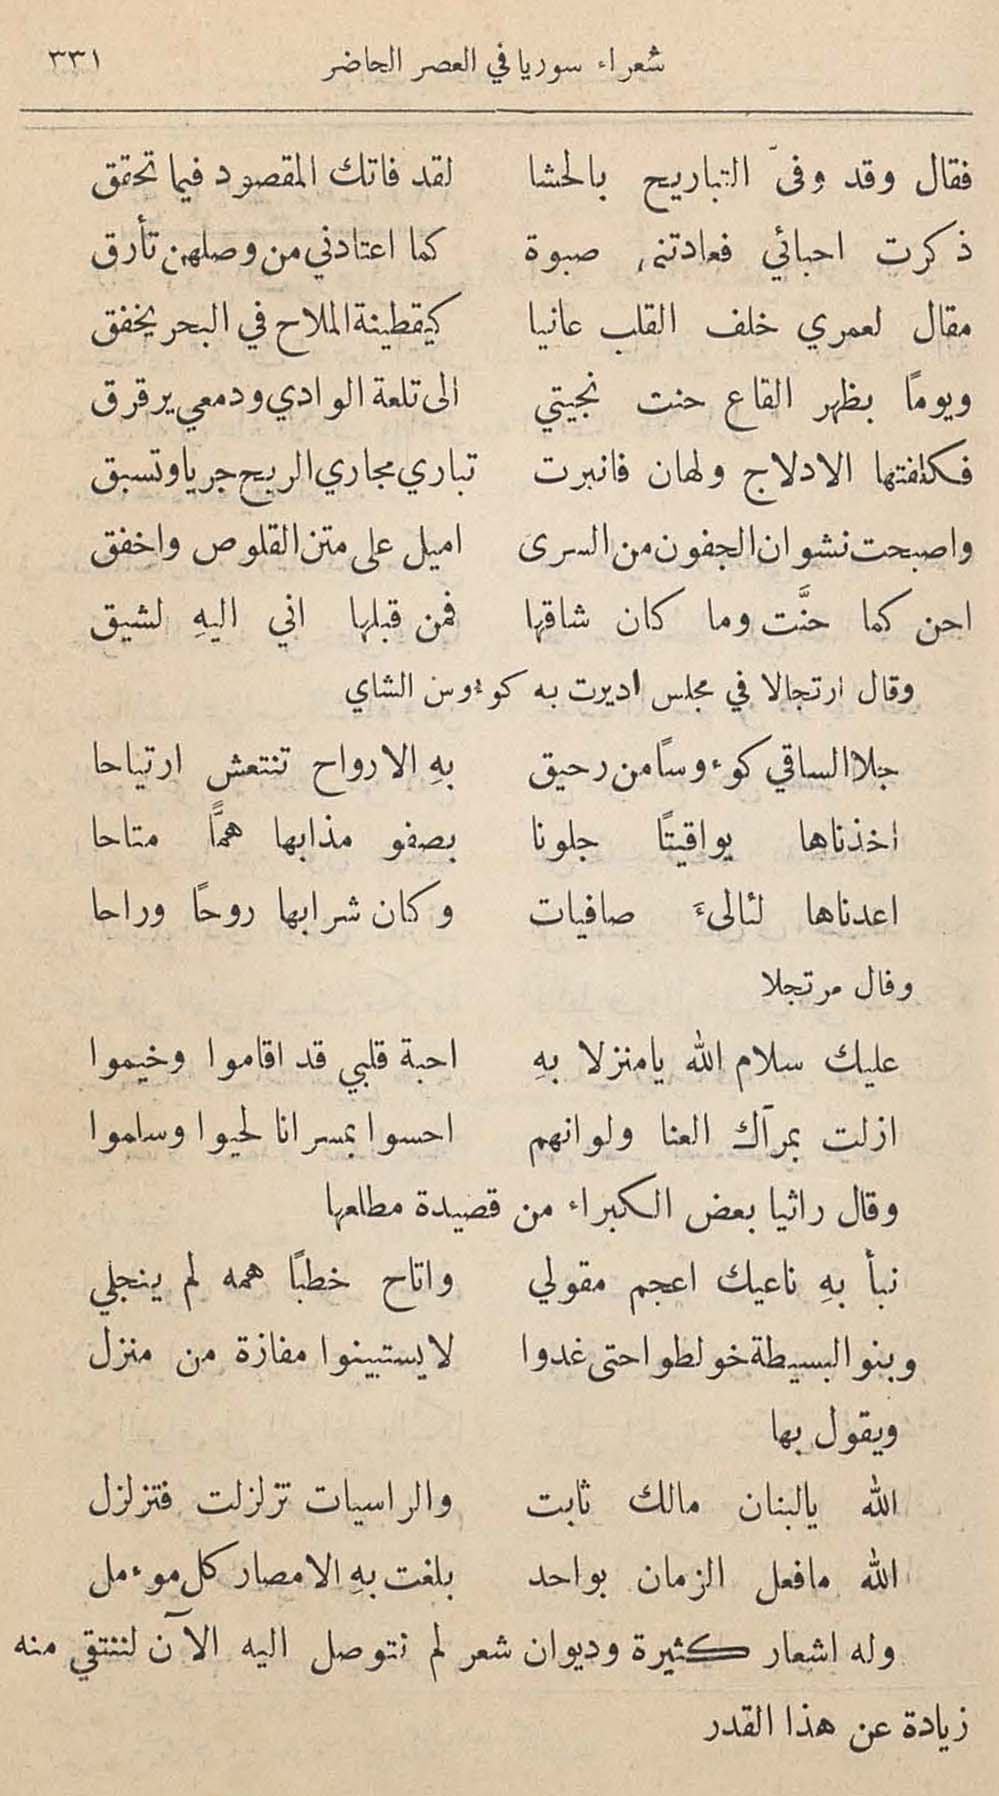 شعراء سوريا في العصر الحاضر ٣٣١
فقال وقد وفىّ التباريح بالحشا لقد فاتك المقصود فيما تحقق
ذكرت احبائي فعادتني صبوة كما اعتادني من وصلهن تأرق
مقال لعمري خلف القلب عانيا كيقطينة الملاح في البحر يخفق
ويومًا بظهر القاع حنت نجيتي الى تلعة الوادي ودمعي يرقرق
فكلفتها الادلاج ولهان فانبرت تباري مجاري الريح جريا وتسبق
واصبحت نشوان الجفون من السرى اميل على متن القلوص واخفق
احن كما حنَّت وما كان شاقها فمن قبلها اني اليهِ لشيق
وقال ارتجالا في مجلس اديرت به كوءوس الشاي
جلا الساقي كوءوسًا من رحيق بهِ الارواح تنتعش ارتياحا
اخذناها يواقيتًا جلونا بصفو مذابها همًّا متاحا
اعدناها لئالىءَ صافيات وكان شرابها روحًا وراحا
وقال مرتجلا
عليك سلام الله يا منزلا بهِ احبة قلبي قد اقاموا وخيموا
ازلت بمرآك العنا ولو انهم احسوا بمسرانا لحيوا وسلموا
وقال راثيا بعض الكبراء من قصيدة مطلعها
نبأ بهِ ناعيك اعجم مقولي واتاح خطبًا همه لم ينجلي
وبنو البسيطة خولطوا حتى غدوا لا يستبينوا مفازة من منزل
ويقول بها
الله يالبنان مالك ثابت والراسيات تزلزلت فتزلزل
الله مافعل الزمان بواحد بلغت بهِ الامصار كل موءمل
وله اشعار كثيرة وديوان شعر لم نتوصل اليه الآن لننتقي منه
زيادة عن هذا القدر